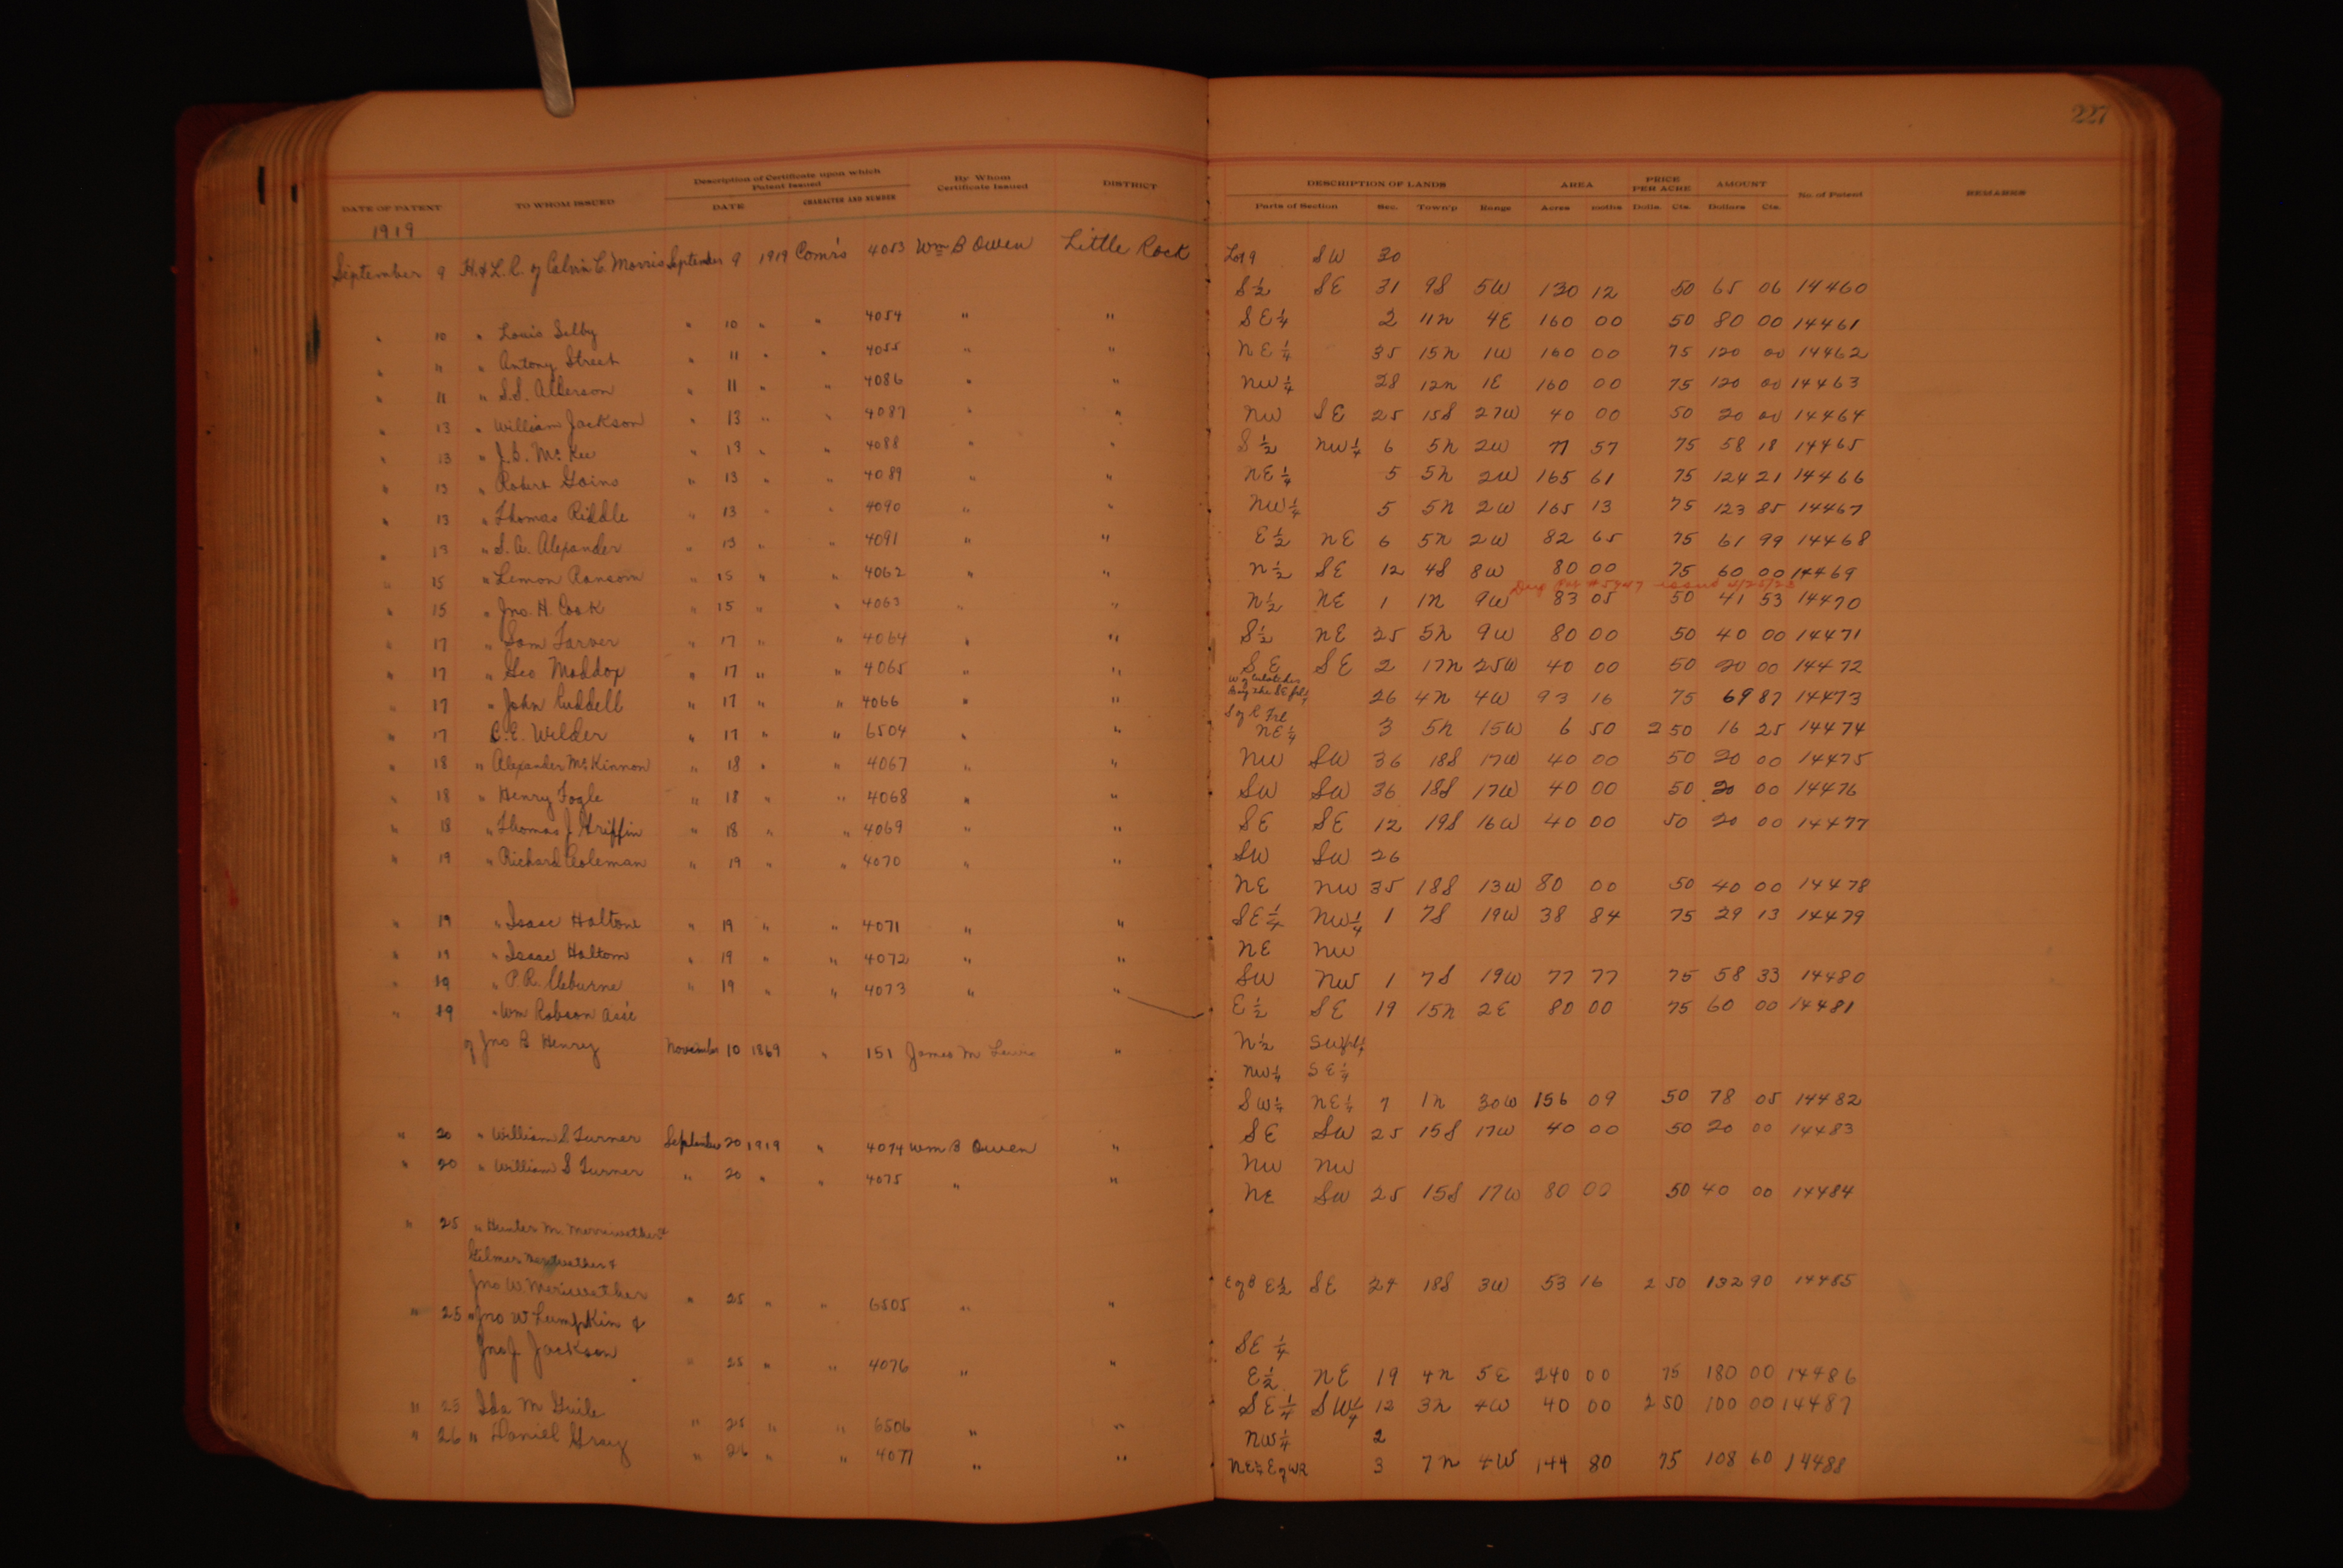 227
DATE OF PATENT TO WHOM ISSUED Description of Certificate upon which Patent Issued By Whom Certificate Issued DISTRICT
DATE CHARACTER AND NUMBER
1919
September 9 H. & L. R. of Calvin C. Morris September 9 1919 Com'rs 4053 Wm B Owen Little Rock
" 10 " Louis Selby " 10 " " 4054 " "
" " " Antony Street " 11 " " 4055 " "
" 11 " S.S. Alberson " 11 " " 4086 " "
" 13 " William Jackson " 13 " " 4087 " "
" 13 " J.B. McKee " 13 " " 4088 " "
" 13 " Robert Goins " 13 " " 4089 " "
" 13 " Thomas Riddle " 13 " " 4090 " "
" 13 " S. A. Alexander " 13 " " 4091 " "
" 15 " Lemon Ransom " 15 " " 4062 " "
" 15 " Jno. H. Cook " 15 " " 4063 " "
" 17 " Sam Tarver " 17 " " 4064 " "
" 17 " Geo Maddox " 17 " " 4065 " "
" 17 " John Ruddell " 17 " " 4066 " "
" 17 C.E. Wilder " 17 " " 6504 " "
" 18 " Alexander McKinnon " 18 " " 4067 " "
" 18 " Henry Fogle " 18 " " 4068 " "
" 18 " Thomas J. Griffin " 18 " " 4069 " "
" 19 " Richard Coleman " 19 " " 4070 " "
" 19 " Isaac Holtom " 19 " " 4071 " "
" 19 " Isaac Holtom " 19 " " 4072 " "
" 19 " P.R. Cleburne " 19 " " 4073 " "
" 19 " Wm Robson assé
of Jno B Henry November 10 1869 " 151 James M Lewis "
" 20 " William S Turner September 20 1919 " 4074 Wm B Owen "
" 20 " William S Turner " 20 " " 4075 " "
" 25 " Hunter M. Merriwether &
Gilmer Meriwether &
Jno W. Meriwether " 25 " " 6505 " "
" 25 " Jno W Lumpkin &
Jno J Jackson " 25 " " 4076 " "
" 25 Ida M Guile " 25 " " 6506 " "
" 26 " Daniel Gray " 26 " " 4077 " "
DESCRIPTION OF LANDS AREA PRICE PER ACRE AMOUNT No of Patent REMARKS
Parts of Section Sec. Town'p Range Acres 100ths Dolls. Cts. Dollars Cts.
Lot 9 SW 30
S½ SE 31 9S 5W 130 12 50 65 06 14460
SE¼ 2 11N 4E 160 00 50 80 00 14461
NE¼ 35 15N 1W 160 00 75 120 00 14462
NW¼ 28 12N 1E 160 00 75 120 00 14463
NW SE 25 15S 27W 40 00 50 20 00 14464
S½ NW¼ 6 5N 2W 77 57 75 58 18 14465
NE¼ 5 5N 2W 165 61 75 124 21 14466
NW¼ 5 5N 2W 165 13 75 123 85 14467
E½ NE 6 5N 2W 82 65 75 61 99 14468
N½ SE 12 4S 8W 80 00 75 60 00 14469
issued
N½ NE 1 1N 9W 83 05 50 41 53 14470
S½ NE 25 5N 9W 80 00 50 40 00 14471
SE SE 2 17N 25W 40 00 50 20 00 14472
W of
Bay the SE frl¼ 26 4N 4W 93 16 75 69 87 14473
S of R Frl
NE¼ 3 5N 15W 6 50 2 50 16 25 14474
NW SW 36 18S 17W 40 00 50 20 00 14475
SW SW 36 18S 17W 40 00 50 20 00 14476
SE SE 12 19S 16W 40 00 50 20 00 14477
SW SW 26
NE NW 35 18S 13W 80 00 50 40 00 14478
SE¼ NW¼ 1 7S 19W 38 84 75 29 13 14479
NE NW
SW NW 1 7S 19W 77 77 75 58 33 14480
E½ SE 19 15N 2E 80 00 75 60 00 14481
N½ SWfrl¼
NW¼ SE¼
SW¼ NE¼ 7 1N 30W 156 09 50 78 05 14482
SE SW 25 15S 17W 40 00 50 20 00 14483
NW NW
NE SW 25 15S 17W 80 00 50 40 00 14484
E of B E½ SE 24 18S 3W 53 16 2 50 132 90 14485
SE¼
E½ NE 19 4N 5E 240 00 75 180 00 14486
SE¼ SW¼ 12 3N 4W 40 00 2 50 100 00 14487
NW¼ 2
NE¼ E of WR 3 7N 4W 144 80 75 108 60 14488